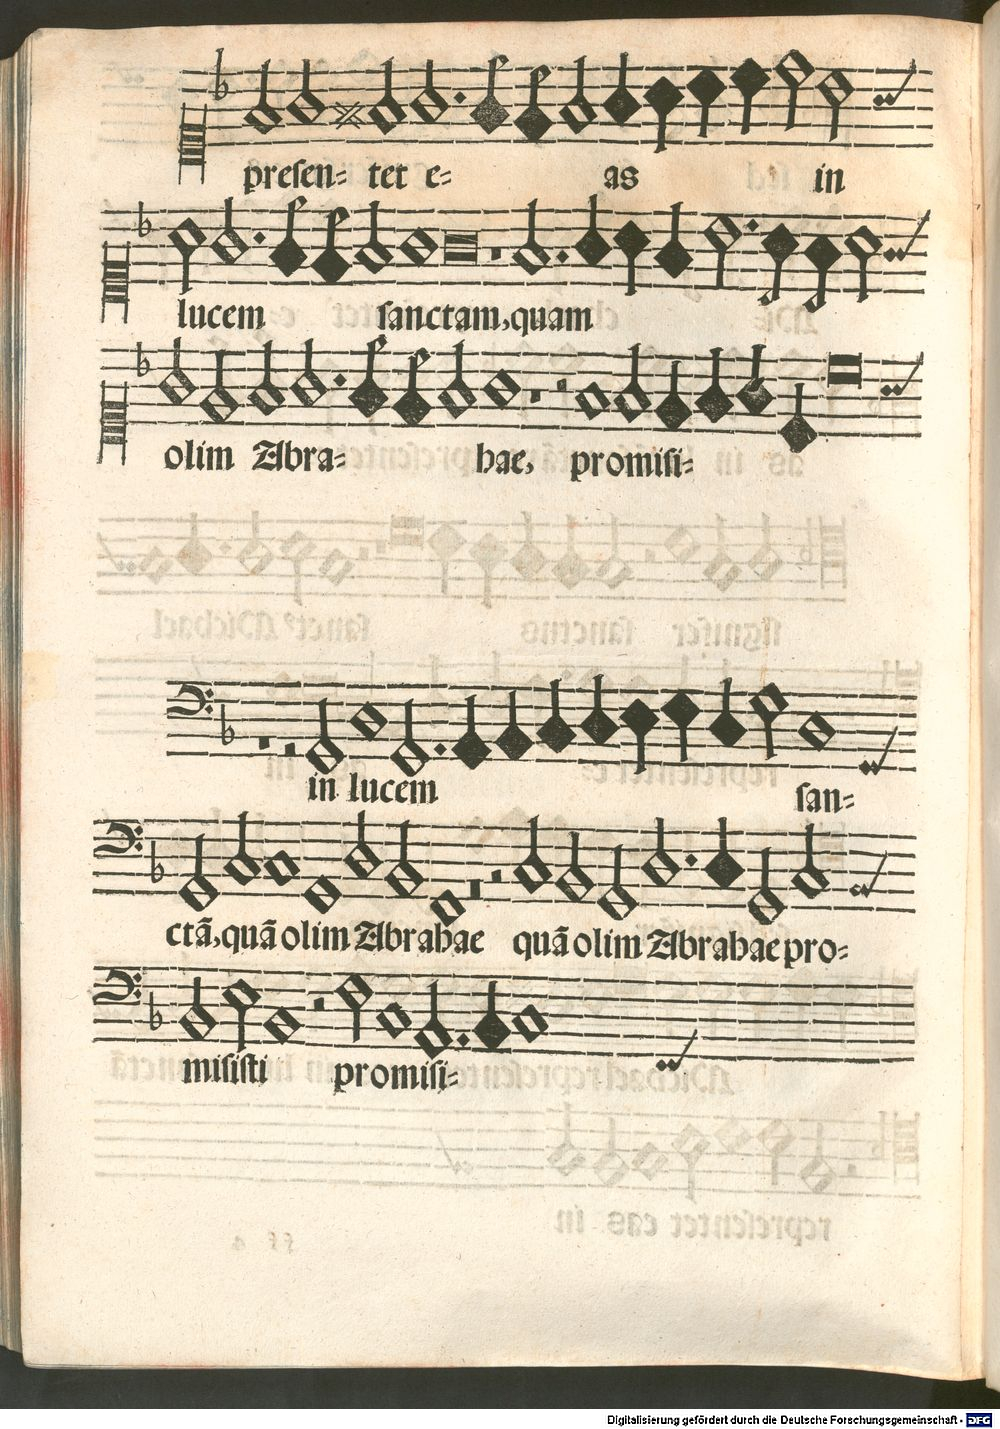 preſen= tet e= as in
lucem ſanctam, quam
olim Abra= hae, promiſi=
in lucem ſan=
ctã, quã olim Abrahae quã olim Abrahae pro=
miſiſti promiſi=
Digitalisierung gefördert durch die Deutsche Forschungsgemeinschaft - DFG